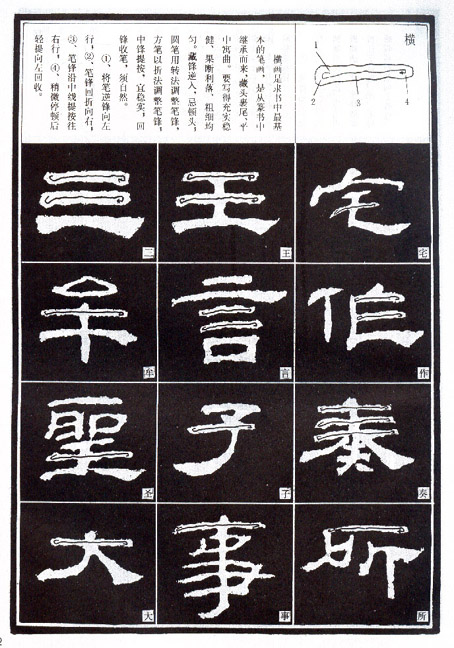 横
1
2
3
4
横画是隶书中最基
本的笔画，是从篆书中
继承而来，藏头裹尾、平
中寓曲。要写得充实稳
健、果断利落、粗细均
匀。藏锋逆入，忌顿头，
圆笔用转法调整笔锋，
方笔以折法调整笔锋，
中锋提按，宜稳实，回
锋收笔，须自然。
①、将笔逆锋向左
行，②、笔锋回折向右，
③、笔锋沿中线提按往
右行，④、稍微停顿后
轻提向左回收。
宅
宅
王
王
三
三
作
作
言
言
牟
牟
奏
奏
子
子
聖
圣
所
所
事
事
大
大